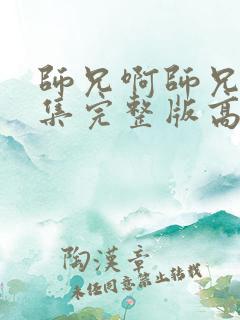 師兄啊師兄
集完整版高
陶漢章
未經同意禁止轉載